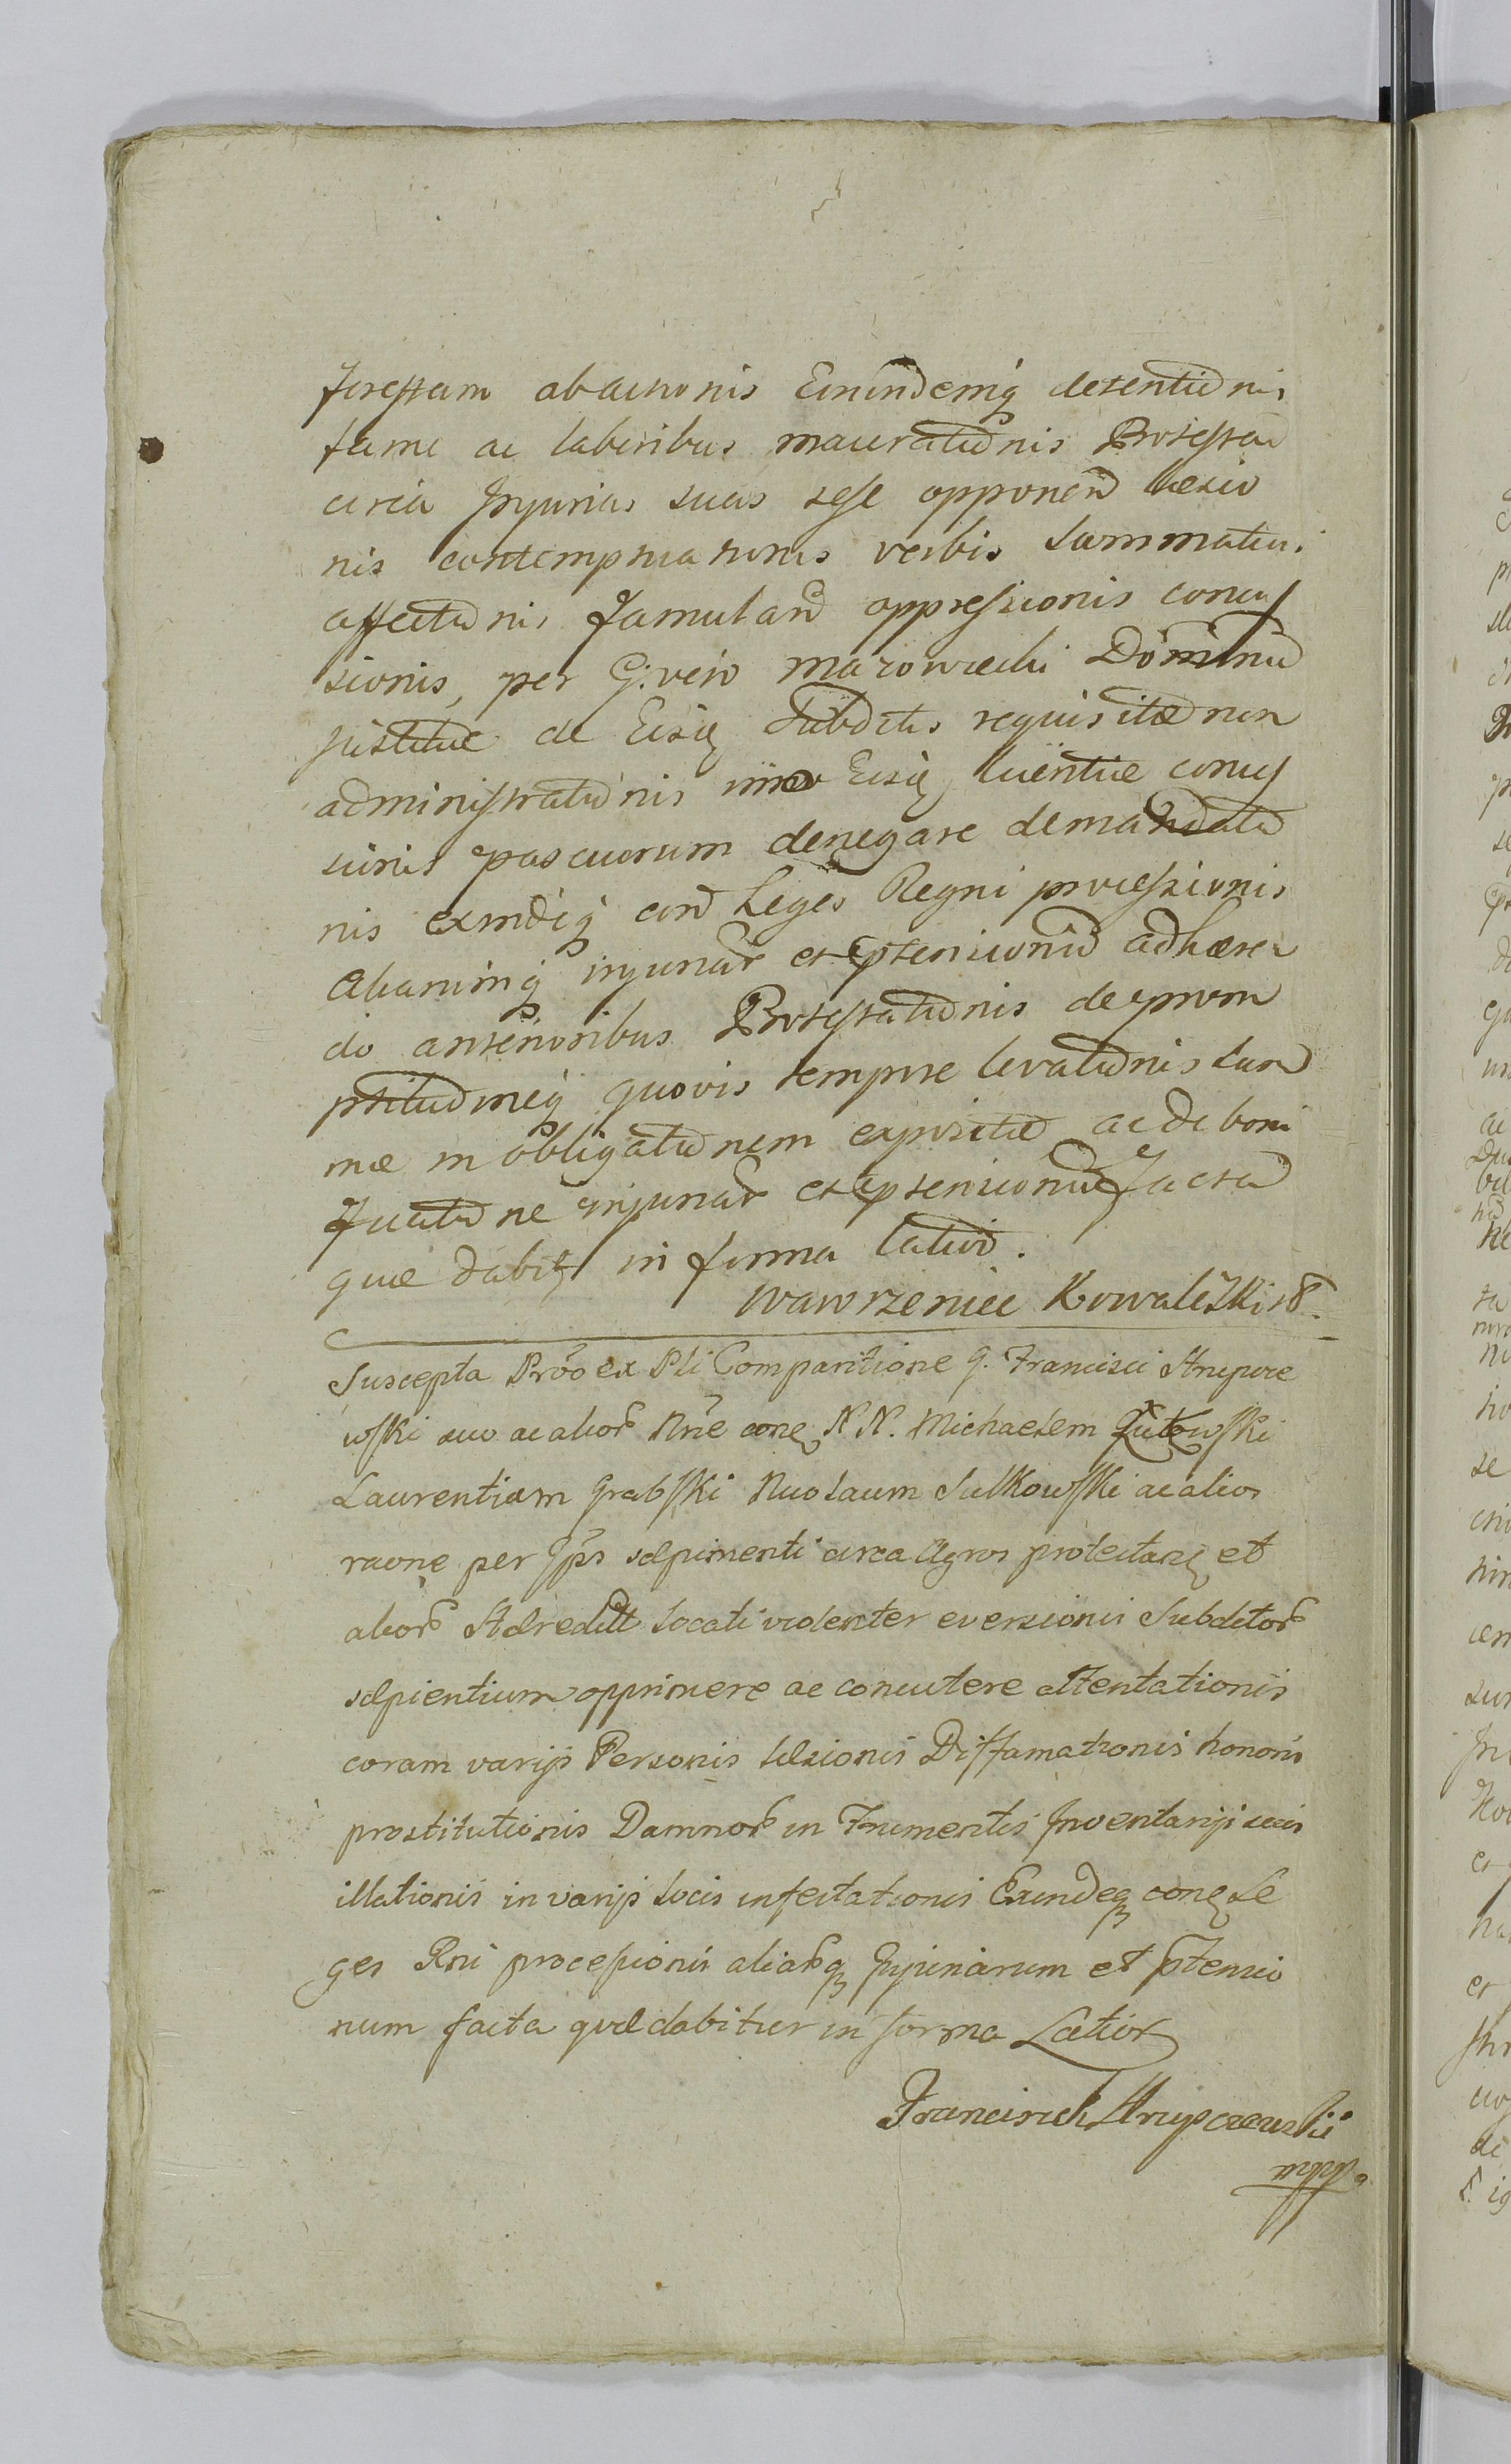 abactionis Eorundemq detentionis
fame ac laboribus macerationis Protestan
circa Injurias suas sese opponen læsio
nis contemptuationis verbis
affectionis Famulan oppressionis concus
sionis, per G: vero Mazowiecki Dominium
Justitiæ de Eisdē Subditis requisitæ non
administrationis imo Eisdē licentiæ concus
pascuorum denegare demandatio
nis exindeq con Leges Regni processionis
aliarumq injuriar et ptensionum adhæren
do anterioribus Protestationis de prom
ptitudineq quovis tempore levationis
in obligationem ac de boni
injuriar et ptensionum facta
quæ dabitur in forma latiori.
Wawrzeniec Kowalewski
Suscepta Prõo ex Pli Comparitione G. Francisci Strupcze
wski suo ac alior Nñe con N. N. Michaelem
Laurentium Grabski Nicolaum Sulkowski ac alios
raone per Ipsos sæpimenti circa Agros protectare et
alior Hæredit locati violenter eversionis Subditor
sæpientium opprimere ac concutere attentationis
coram varijs Personis læsionis Diffamationis honoris
prostitutionis Damnor in Frumentis Inventarij suis
illationis in varijs locis infestationis Exindeq cone Le
ges Rni processionis aliarq Injuriarum et ptensio
num facta quæ dabitur in forma Latior
Franciszek Strupczewski
mpp